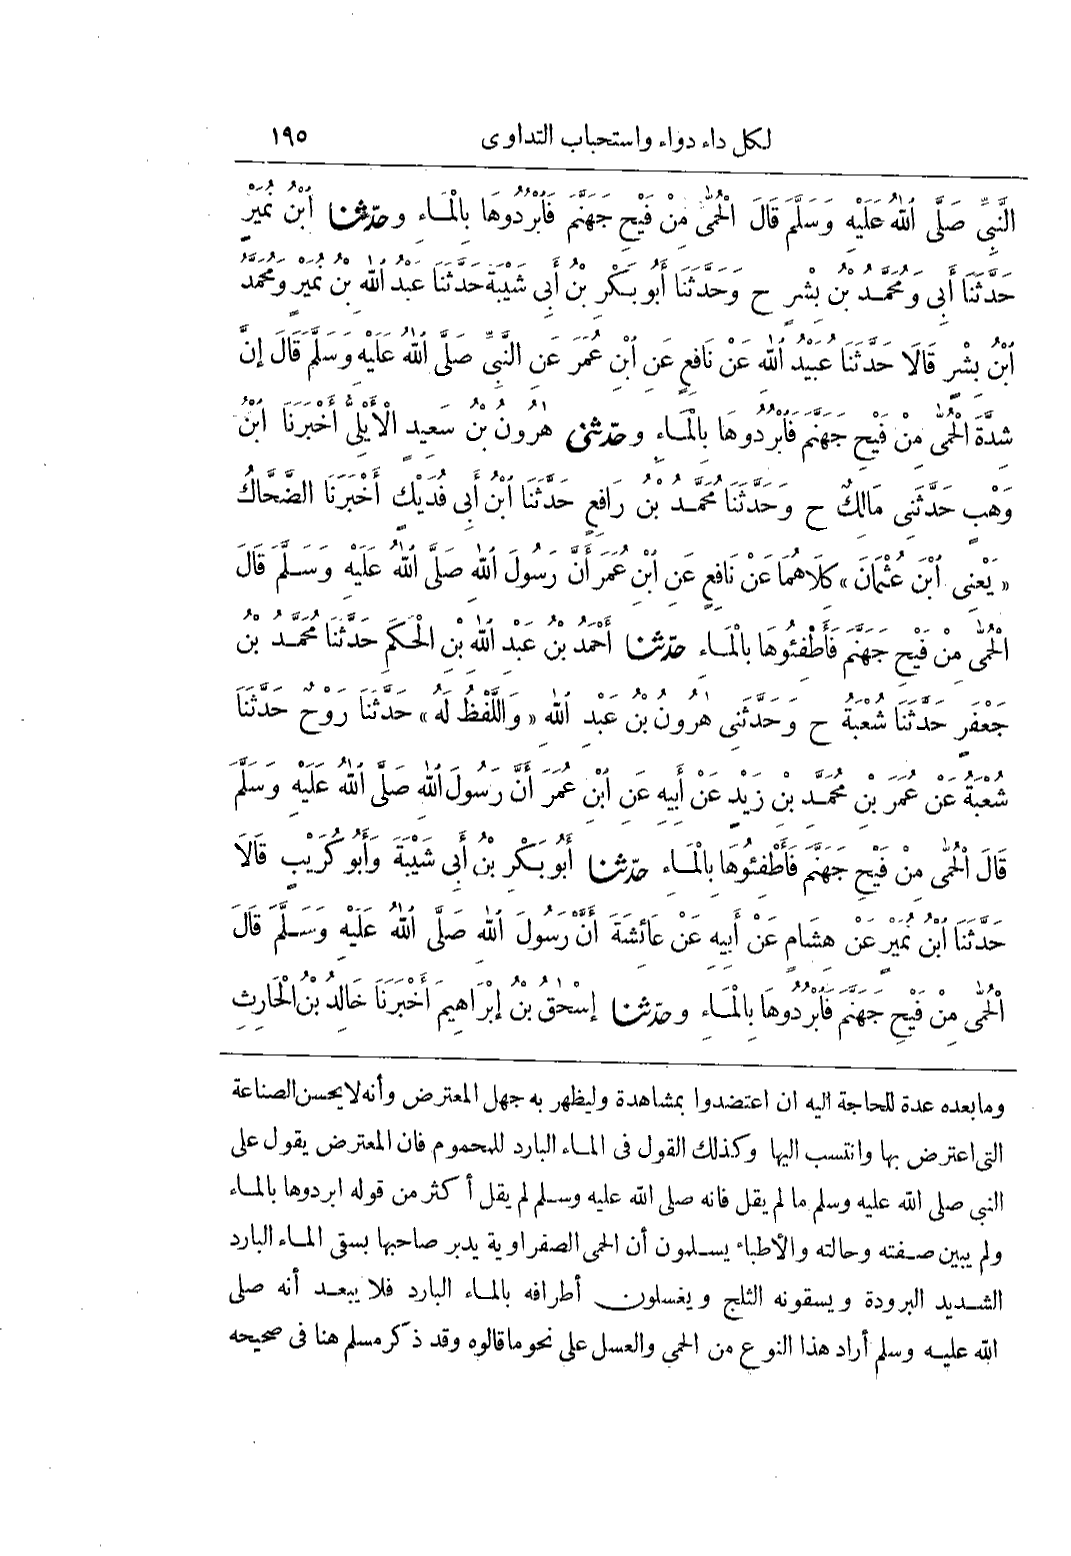 لكل داء دواء واستحباب التداوى ١٩٥
النَّبِيِّ صَلَّى ٱللهُ عَلَيْهِ وَسَلَّمَ قَالَ الْحُمَّى مِنْ فَيْحِ جَهَنَّمَ فَابْرُدُوهَا بِالْمَاءِ وحَدَّثَنَا ٱبْنُ نُمَيْرٍ
حَدَّثَنَا أَبِى وَمُحَمَّدُ بْنُ بِشْرٍ ح وَحَدَّثَنَا أَبُو بَكْرِ بْنُ أَبِى شَيْبَةَ حَدَّثَنَا عَبْدُ ٱللهِ بْنُ نُمَيْرٍ وَمُحَمَّدُ
ٱبْنُ بِشْرٍ قَالَا حَدَّثَنَا عُبَيْدُ ٱللهِ عَنْ نَافِعٍ عَنِ ٱبْنِ عُمَرَ عَنِ النَّبِيِّ صَلَّى ٱللهُ عَلَيْهِ وَسَلَّمَ قَالَ إِنَّ
شِدَّةَ الْحُمَّى مِنْ فَيْحِ جَهَنَّمَ فَابْرُدُوهَا بِالْمَاءِ وحَدَّثَنِى هٰرُونُ بْنُ سَعِيدٍ الْأَيْلِىُّ أَخْبَرَنَا ٱبْنُ
وَهْبٍ حَدَّثَنِى مَالِكٌ ح وَحَدَّثَنَا مُحَمَّدُ بْنُ رَافِعٍ حَدَّثَنَا ٱبْنُ أَبِى فُدَيْكٍ أَخْبَرَنَا الضَّحَّاكُ
«يَعْنِى ٱبْنَ عُثْمَانَ» كِلَاهُمَا عَنْ نَافِعٍ عَنِ ٱبْنِ عُمَرَ أَنَّ رَسُولَ ٱللهِ صَلَّى ٱللهُ عَلَيْهِ وَسَلَّمَ قَالَ
الْحُمَّى مِنْ فَيْحِ جَهَنَّمَ فَأَطْفِئُوهَا بِالْمَاءِ حَدَّثَنَا أَحْمَدُ بْنُ عَبْدِ ٱللهِ بْنِ الْحَكَمِ حَدَّثَنَا مُحَمَّدُ بْنُ
جَعْفَرٍ حَدَّثَنَا شُعْبَةُ ح وَحَدَّثَنِى هٰرُونُ بْنُ عَبْدِ ٱللهِ «وَاللَّفْظُ لَهُ» حَدَّثَنَا رَوْحٌ حَدَّثَنَا
شُعْبَةُ عَنْ عُمَرَ بْنِ مُحَمَّدِ بْنِ زَيْدٍ عَنْ أَبِيهِ عَنِ ٱبْنِ عُمَرَ أَنَّ رَسُولَ ٱللهِ صَلَّى ٱللهُ عَلَيْهِ وَسَلَّمَ
قَالَ الْحُمَّى مِنْ فَيْحِ جَهَنَّمَ فَأَطْفِئُوهَا بِالْمَاءِ حَدَّثَنَا أَبُو بَكْرِ بْنُ أَبِى شَيْبَةَ وَأَبُو كُرَيْبٍ قَالَا
حَدَّثَنَا ٱبْنُ نُمَيْرٍ عَنْ هِشَامٍ عَنْ أَبِيهِ عَنْ عَائِشَةَ أَنَّ رَسُولَ ٱللهِ صَلَّى ٱللهُ عَلَيْهِ وَسَلَّمَ قَالَ
الْحُمَّى مِنْ فَيْحِ جَهَنَّمَ فَابْرُدُوهَا بِالْمَاءِ وحَدَّثَنَا إِسْحٰقُ بْنُ إِبْرَاهِيمَ أَخْبَرَنَا خَالِدُ بْنُ الْحَارِثِ
ومابعده عدة للحاجة اليه ان اعتضدوا بمشاهدة وليظهر به جهل المعترض وأنه لا يحسن الصناعة
التى اعترض بها وانتسب اليها وكذلك القول فى الماء البارد للمحموم فان المعترض يقول على
النبى صلى الله عليه وسلم ما لم يقل فانه صلى الله عليه وسلم لم يقل أكثر من قوله ابردوها بالماء
ولم يبين صفته وحالته والأطباء يسلمون أن الحمى الصفراوية يدبر صاحبها بسقى الماء البارد
الشديد البرودة ويسقونه الثلج ويغسلون أطرافه بالماء البارد فلا يبعد أنه صلى
الله عليه وسلم أراد هذا النوع من الحمى والغسل على نحو ما قالوه وقد ذكر مسلم هنا فى صحيحه